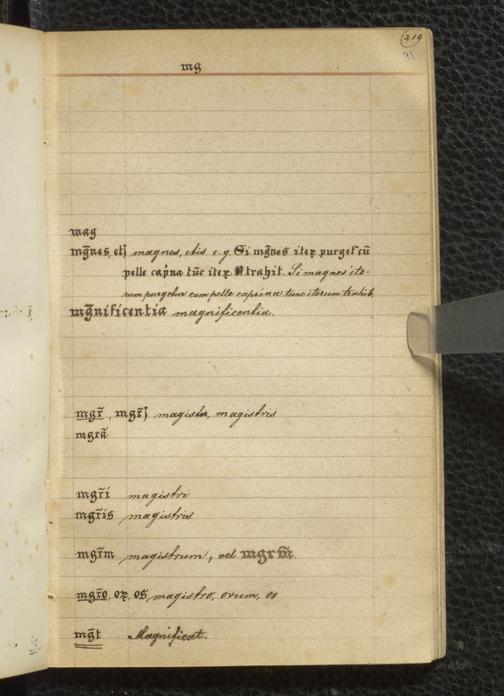 219
91
mg
mag
mg̅nes, etꝭ magnes, etis e.g. Si mg̅nes iteꝝ purget᷒ cū
pelle cap̅na tūc iteꝝ trahit. Si magnes ite-
rum purgetur cum pelle caprina tunc iterum trahit.
mg̅nificentia magnificentia.
mgr̅, mgr̅ꝭ magister, magistris
mgrā
mgr̅i magistri
mgr̅is magistris
mgr̅m magistrum, vel mgrm̅.
mgr̅o, oꝝ, os, magistro, orum, os
mg̅t Magnificat.